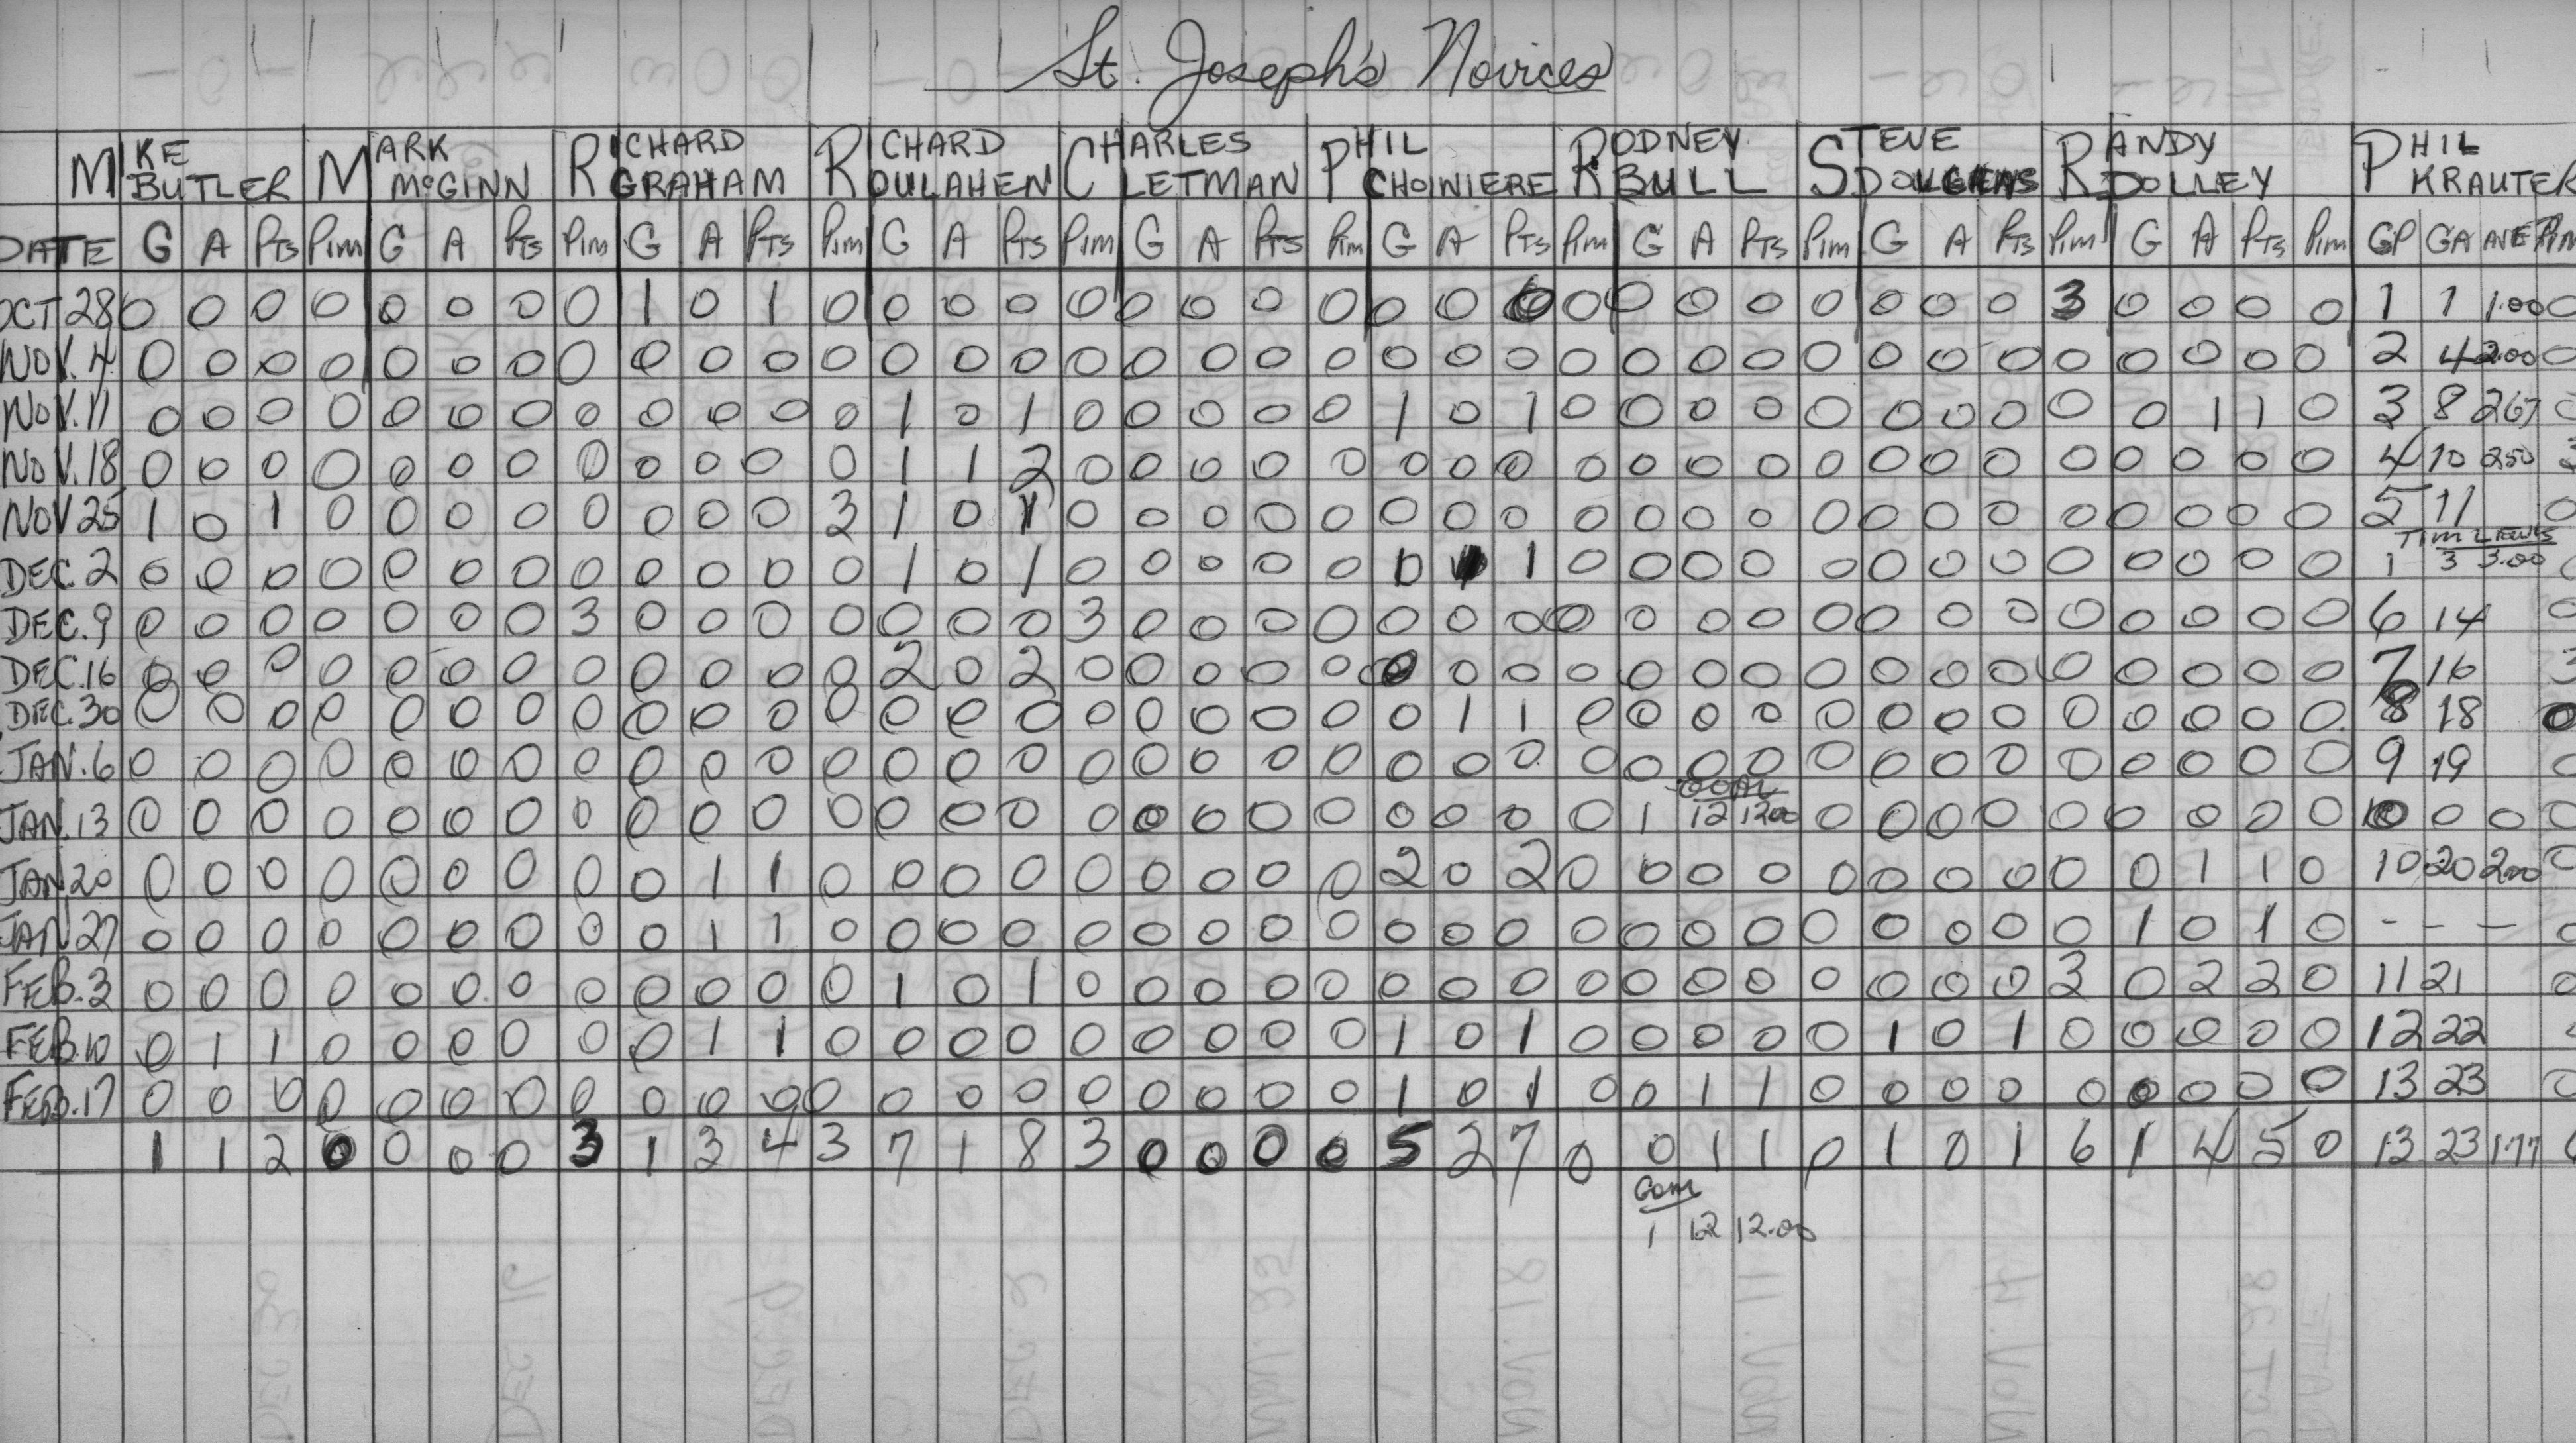 St. Joseph's Novices
MIKE BUTLER MARK McGINN RICHARD GRAHAM RICHARD OULAHEN CHARLES LETMAN PHIL CHOINIERE RODNEY BULL STEVE RANDY DOLLEY PHIL KRAUTER
DATE G A PTS PIM G A PTS PIM G A PTS PIM G A PTS PIM G A PTS PIM G A PTS PIM G A PTS PIM G A PTS PIM G A PTS PIM GP GA AVE PIM
OCT 28 0 0 0 0 0 0 0 0 1 0 1 0 0 0 0 0 0 0 0 0 0 0 0 0 0 0 0 0 0 0 0 3 0 0 0 0 1 1 1.00 0
NOV. 4 0 0 0 0 0 0 0 0 0 0 0 0 0 0 0 0 0 0 0 0 0 0 0 0 0 0 0 0 0 0 0 0 0 0 0 0 2 4 2.00 0
NOV. 11 0 0 0 0 0 0 0 0 0 0 0 0 1 0 1 0 0 0 0 0 1 0 1 0 0 0 0 0 0 0 0 0 0 1 1 0 3 8 267 0
NOV. 18 0 0 0 0 0 0 0 0 0 0 0 0 1 1 2 0 0 0 0 0 0 0 0 0 0 0 0 0 0 0 0 0 0 0 0 0 4 10 250 3
NOV 25 1 0 1 0 0 0 0 0 0 0 0 3 1 0 1 0 0 0 0 0 0 0 0 0 0 0 0 0 0 0 0 0 0 0 0 0 5 11 0
TIM
DEC. 2 0 0 0 0 0 0 0 0 0 0 0 0 1 0 1 0 0 0 0 0 0 1 0 0 0 0 0 0 0 0 0 0 0 0 0 1 3 3.00 0
DEC. 9 0 0 0 0 0 0 0 3 0 0 0 0 0 0 0 3 0 0 0 0 0 0 0 0 0 0 0 0 0 0 0 0 0 0 0 0 6 14 0
DEC. 16 0 0 0 0 0 0 0 0 0 0 0 0 2 0 2 0 0 0 0 0 0 0 0 0 0 0 0 0 0 0 0 0 0 0 0 0 7 16 3
DEC. 30 0 0 0 0 0 0 0 0 0 0 0 0 0 0 0 0 0 0 0 0 0 1 1 0 0 0 0 0 0 0 0 0 0 0 0 0 8 18 0
JAN. 6 0 0 0 0 0 0 0 0 0 0 0 0 0 0 0 0 0 0 0 0 0 0 0 0 0 0 0 0 0 0 0 0 0 0 0 0 9 19 0
GOAL
JAN. 13 0 0 0 0 0 0 0 0 0 0 0 0 0 0 0 0 0 0 0 0 0 0 0 0 1 12 1200 0 0 0 0 0 0 0 0 0 0 0 0 0
JAN 20 0 0 0 0 0 0 0 0 0 1 1 0 0 0 0 0 0 0 0 0 2 0 2 0 0 0 0 0 0 0 0 0 0 1 1 0 10 20 2.00 0
JAN 27 0 0 0 0 0 0 0 0 0 1 1 0 0 0 0 0 0 0 0 0 0 0 0 0 0 0 0 0 0 0 0 0 1 0 1 0 - - - 0
FEB. 3 0 0 0 0 0 0 0 0 0 0 0 0 1 0 1 0 0 0 0 0 0 0 0 0 0 0 0 0 0 0 0 3 0 2 2 0 11 21 0
FEB. 10 0 1 1 0 0 0 0 0 0 1 1 0 0 0 0 0 0 0 0 0 1 0 1 0 0 0 0 0 1 0 1 0 0 0 0 0 12 22
FEB. 17 0 0 0 0 0 0 0 0 0 0 0 0 0 0 0 0 0 0 0 0 1 0 1 0 0 1 1 0 0 0 0 0 0 0 0 0 13 23 0
1 1 2 0 0 0 0 3 1 3 4 3 7 1 8 3 0 0 0 0 5 2 7 0 0 1 1 0 1 0 1 6 1 4 5 0 13 23 1.77
1 12 12.00